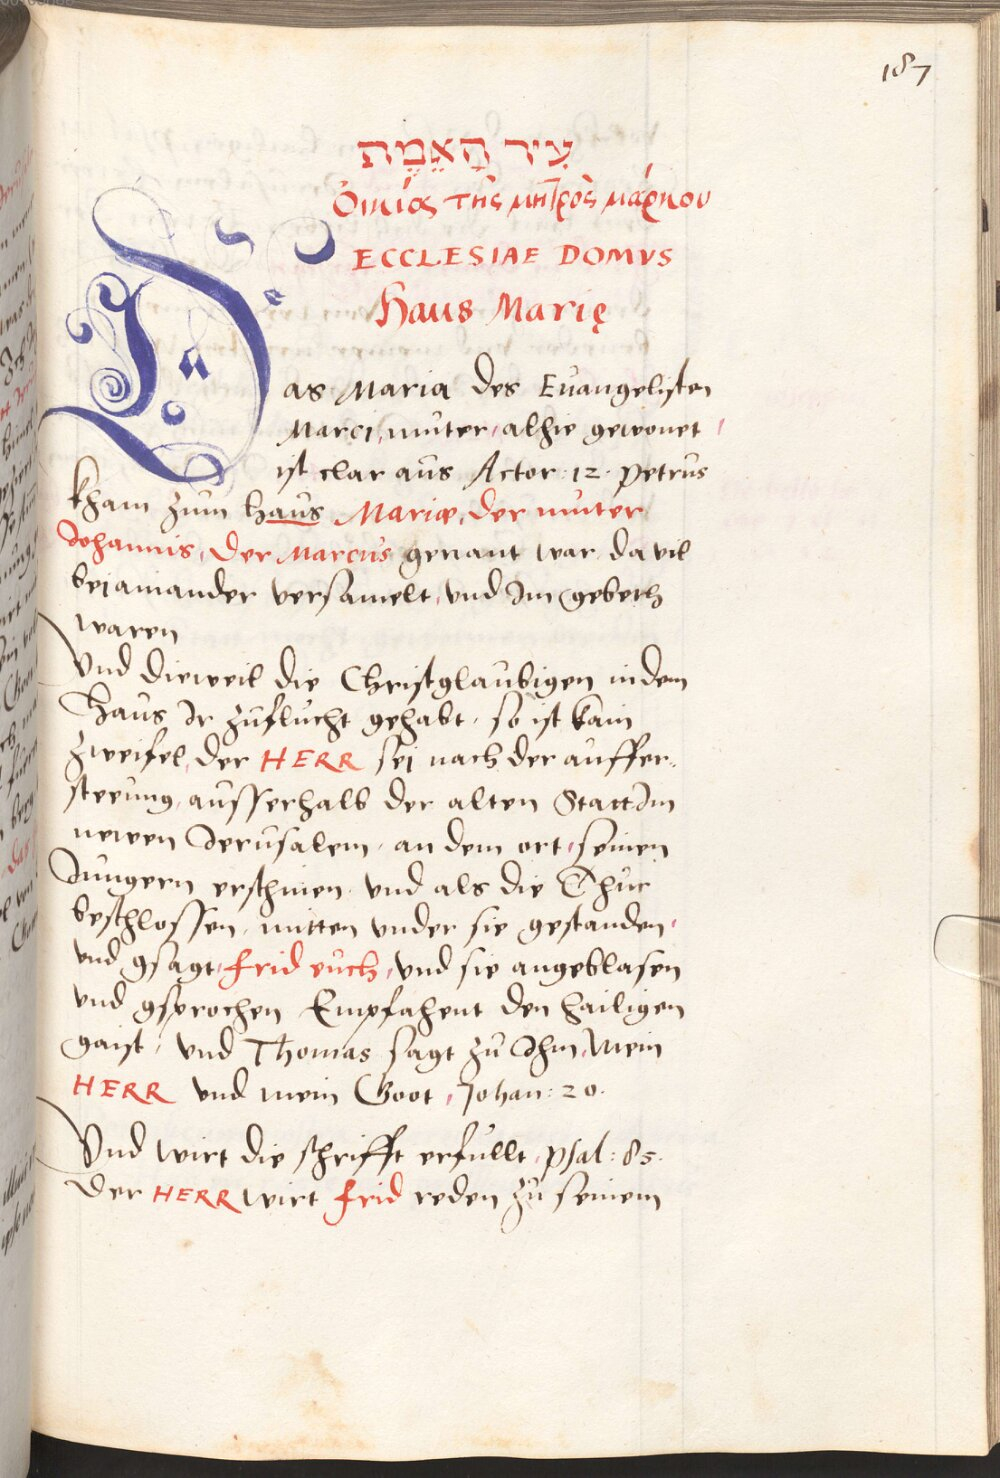 187
עִיר הָאֱמֶת
Ὀικίας τῆς μητρὸς μάρκου
ECCLESIAE DOMVS
Haus Marię
Das Maria des Euangelisten
Marci, muter, alhie gewonet
ist clar aus Actor: 12. Petrus
kham zum haus Mariæ, der muter
Johannis, der Marcus genant war, da vil
beiainander versamelt, vnd im gebeth
waren
Vnd dieweil die Christglaubigen in dem
Haus Ir zuflucht gehabt, so ist kain
zweifel, der HERR sei nach der auffer-
steeung, ausserhalb der alten Statt Im
newen Jerusalem, an dem ort, seinen
Jungern erschinen, vnd als die Thur
beschlossen, mitten vnder sie gestanden,
vnd gsagt, frid euch, vnd sie angeblasen
vnd gsprochen Empfahent den hailigen
gaist, vnd Thomas sagt zu Ihm, Mein
HERR vnd mein Goot, Johan: 20.
Vnd wirt die schrifft erfullt, psal: 85.
Der HERR wirt frid reden zu seinem